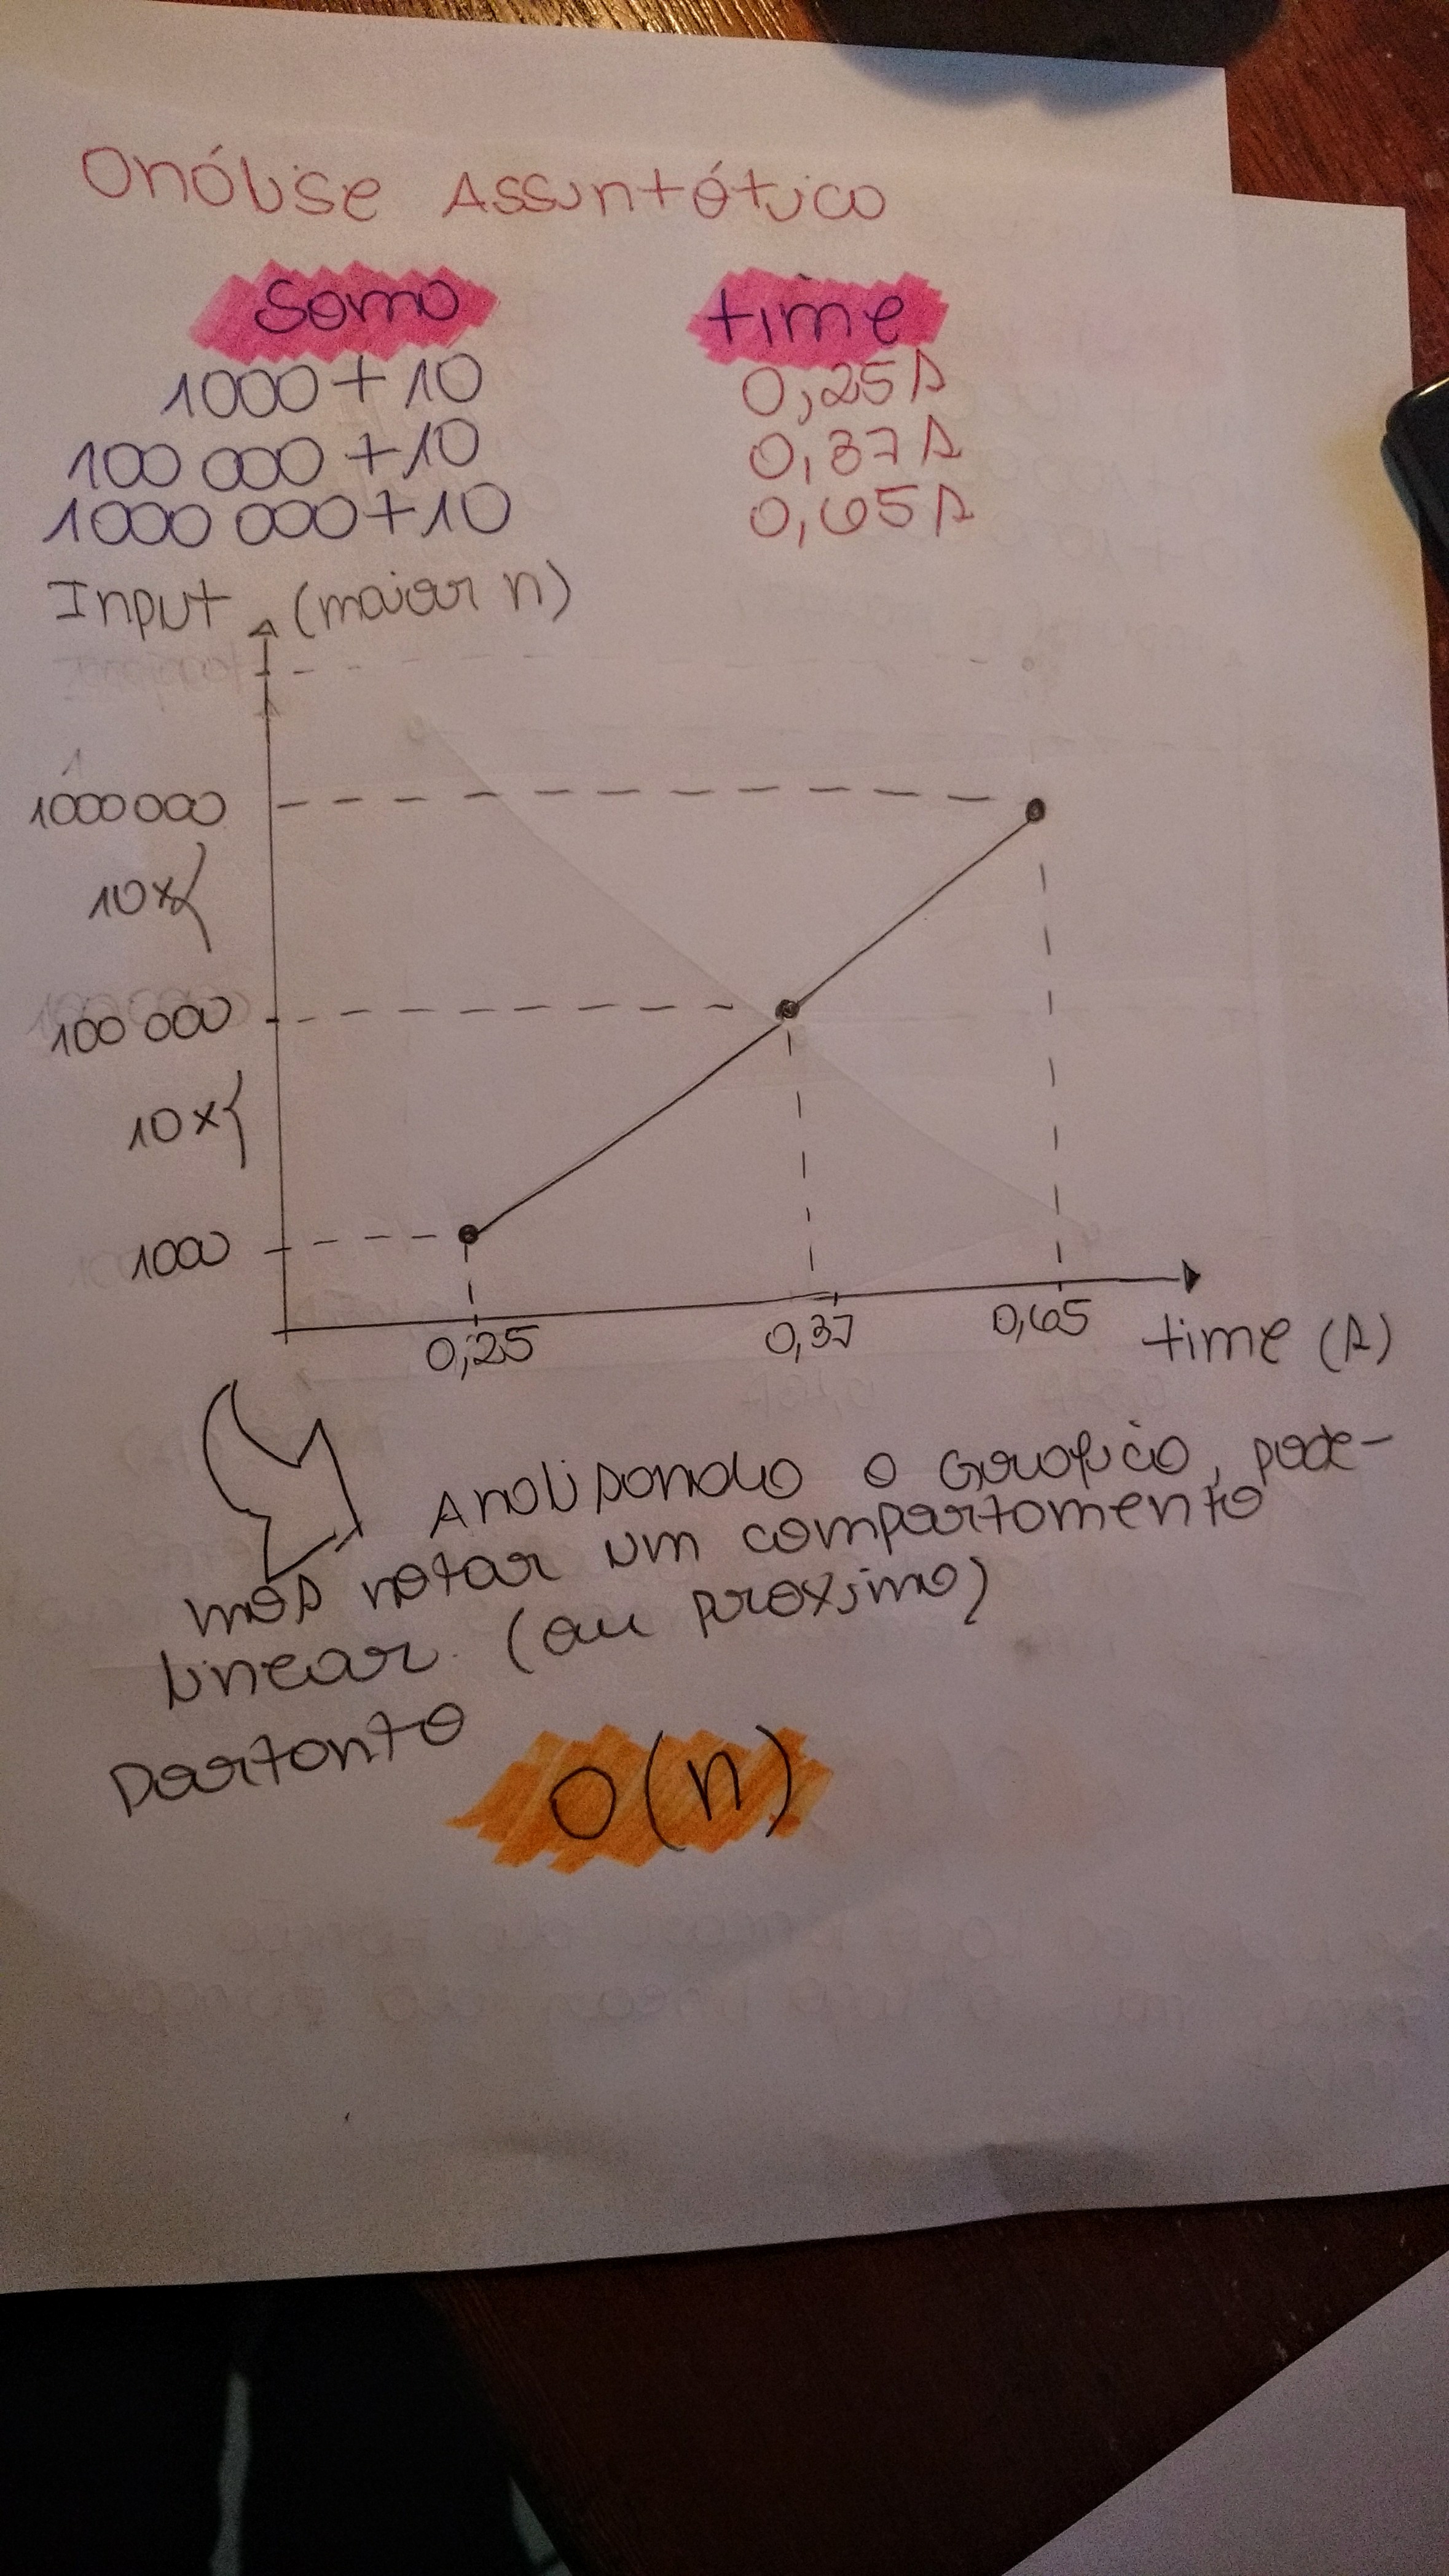 Análise Assintótica
Soma time
1000 + 10 0,25s
100 000 + 10 0,37s
1000 000 + 10 0,65s
Input (maior n)
1000 000
10x{
100 000
10x{
1000
0,25 0,37 0,65 time (s)
Analisando o Grafico, pode-
mos notar um comportamento
linear. (ou proximo)
Portanto
O(n)